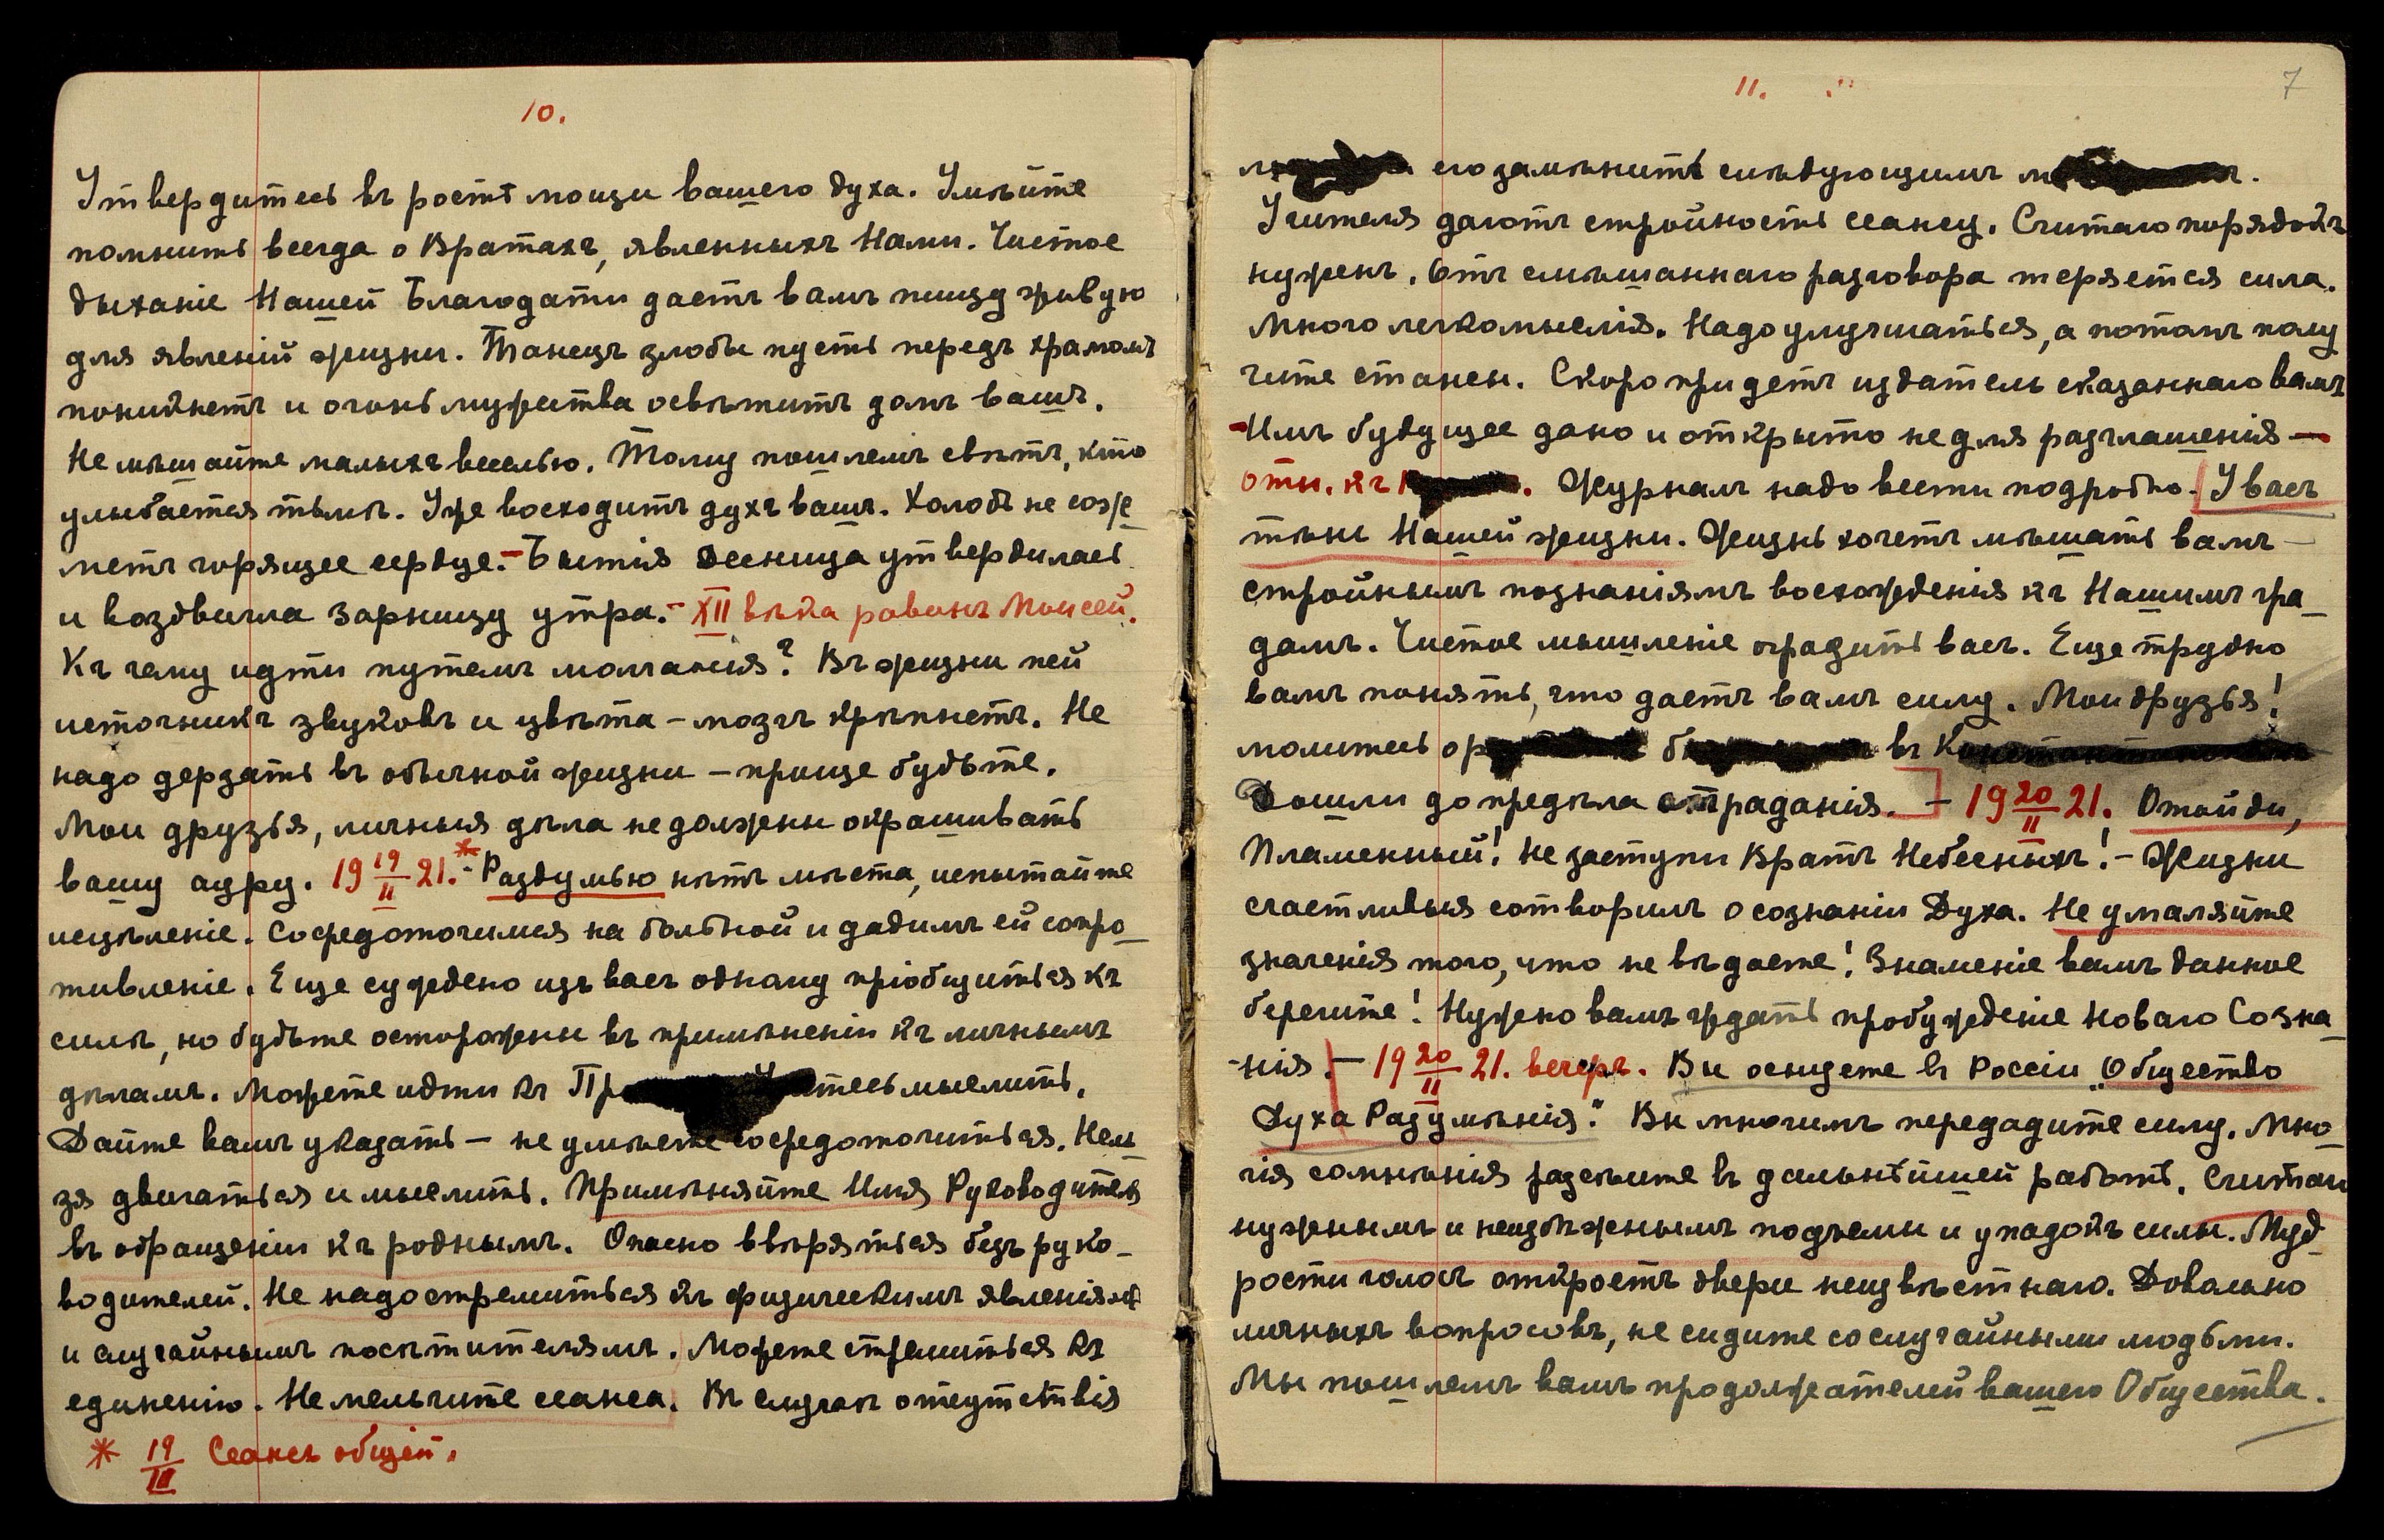 10.
Утвердитесь въ ростѣ мощи вашего духа. Умѣйте
помнить всегда о Вратахъ, явленныхъ Нами. Чистое
дыханіе Нашей Благодати дастъ вамъ пищу живую
для явленій жизни. Танецъ злобы пусть передъ храмомъ
поникнетъ и огонь мужества освѣтитъ домъ вашъ.
Не мѣшайте малыхъ веселью. Тому пошлемъ свѣтъ, кто
улыбается тьмѣ. Уже восходитъ духъ вашъ. Холодъ не сож-
метъ горящее сердце. – Бытія десница утвердилась
и воздвигла зарницу утра. – XII вѣка раввинъ Моисей.
Къ чему идти путемъ молчанія? Въ жизни пей
источникъ звуковъ и цвѣта – мозгъ крѣпнетъ. Не
надо дерзать въ обычной жизни – проще будьте.
Мои друзья, личныя дѣла не должны окрашивать
вашу ауру. 19 19/II 21.* – Раздумью нѣтъ мѣста, испытайте
исцѣленіе. Сосредоточимся на больной и дадимъ ей сопро-
тивленіе. Еще суждено изъ васъ одному пріобщиться къ
силѣ, но будьте осторожны въ примѣненіи къ личнымъ
дѣламъ. Можете идти къ Пр тесь мыслить.
Дайте вамъ указать – не умѣете сосредоточиться. Нель-
зя двигаться и мыслить. Примѣняйте Имя Руководителя
въ обращеніи къ роднымъ. Опасно ввѣряться безъ руко-
водителей. Не надо стремиться къ физическимъ явленіямъ
и случайнымъ посѣтителямъ. Можете стремиться къ
единенію. Не мельчите сеанса. Въ случаѣ отсутствія
* 19/III Сеансъ общій.
11.
7
его замѣнить слѣдующимъ
Учителя даютъ стройность сеансу. Считаю порядокъ
нуженъ. Отъ смѣшаннаго разговора теряется сила.
Много легкомыслія. Надо улучшаться, а потомъ полу
чите станси. Скоро придетъ издатель сказаннаго вамъ
– Имъ будущее дано и открыто не для разглашенія –
отн. къ . Журналъ надо вести подробно. У васъ
тѣни Нашей жизни. Жизнь хочетъ мѣшать вамъ –
стройнымъ познаніямъ восхожденія къ Нашимъ гра-
дамъ. Чистое мышленіе оградитъ васъ. Еще трудно
вамъ понять, что дастъ вамъ силу. Мои друзья!
молитесь о въ
Дошли до предѣла страданія. – 19 20/II 21. Отойди,
Пламенный! Не заступи Вратъ Небесныхъ! – Жизни
счастливыя сотворимъ о сознаніи Духа. Не умаляйте
значенія того, что не вѣдаете! Знаменіе вамъ данное
берегите! Нужно вамъ ждать пробужденіе Новаго Созна-
-нія. – 19 20/II 21. вечеръ. Вы оснуете въ Россіи „Общество
Духа Разумѣнія." Вы многимъ передадите силу. Мно-
гія сомнѣнія разсѣите въ дальнѣйшей работѣ. Считаю
нужнымъ и неизбѣжнымъ подъемы и упадокъ силы. Муд-
рости голосъ откроетъ двери неизвѣстнаго. Довольно
личныхъ вопросовъ, не сидите со случайными людьми.
Мы пошлемъ вамъ продолжателей вашего Общества.